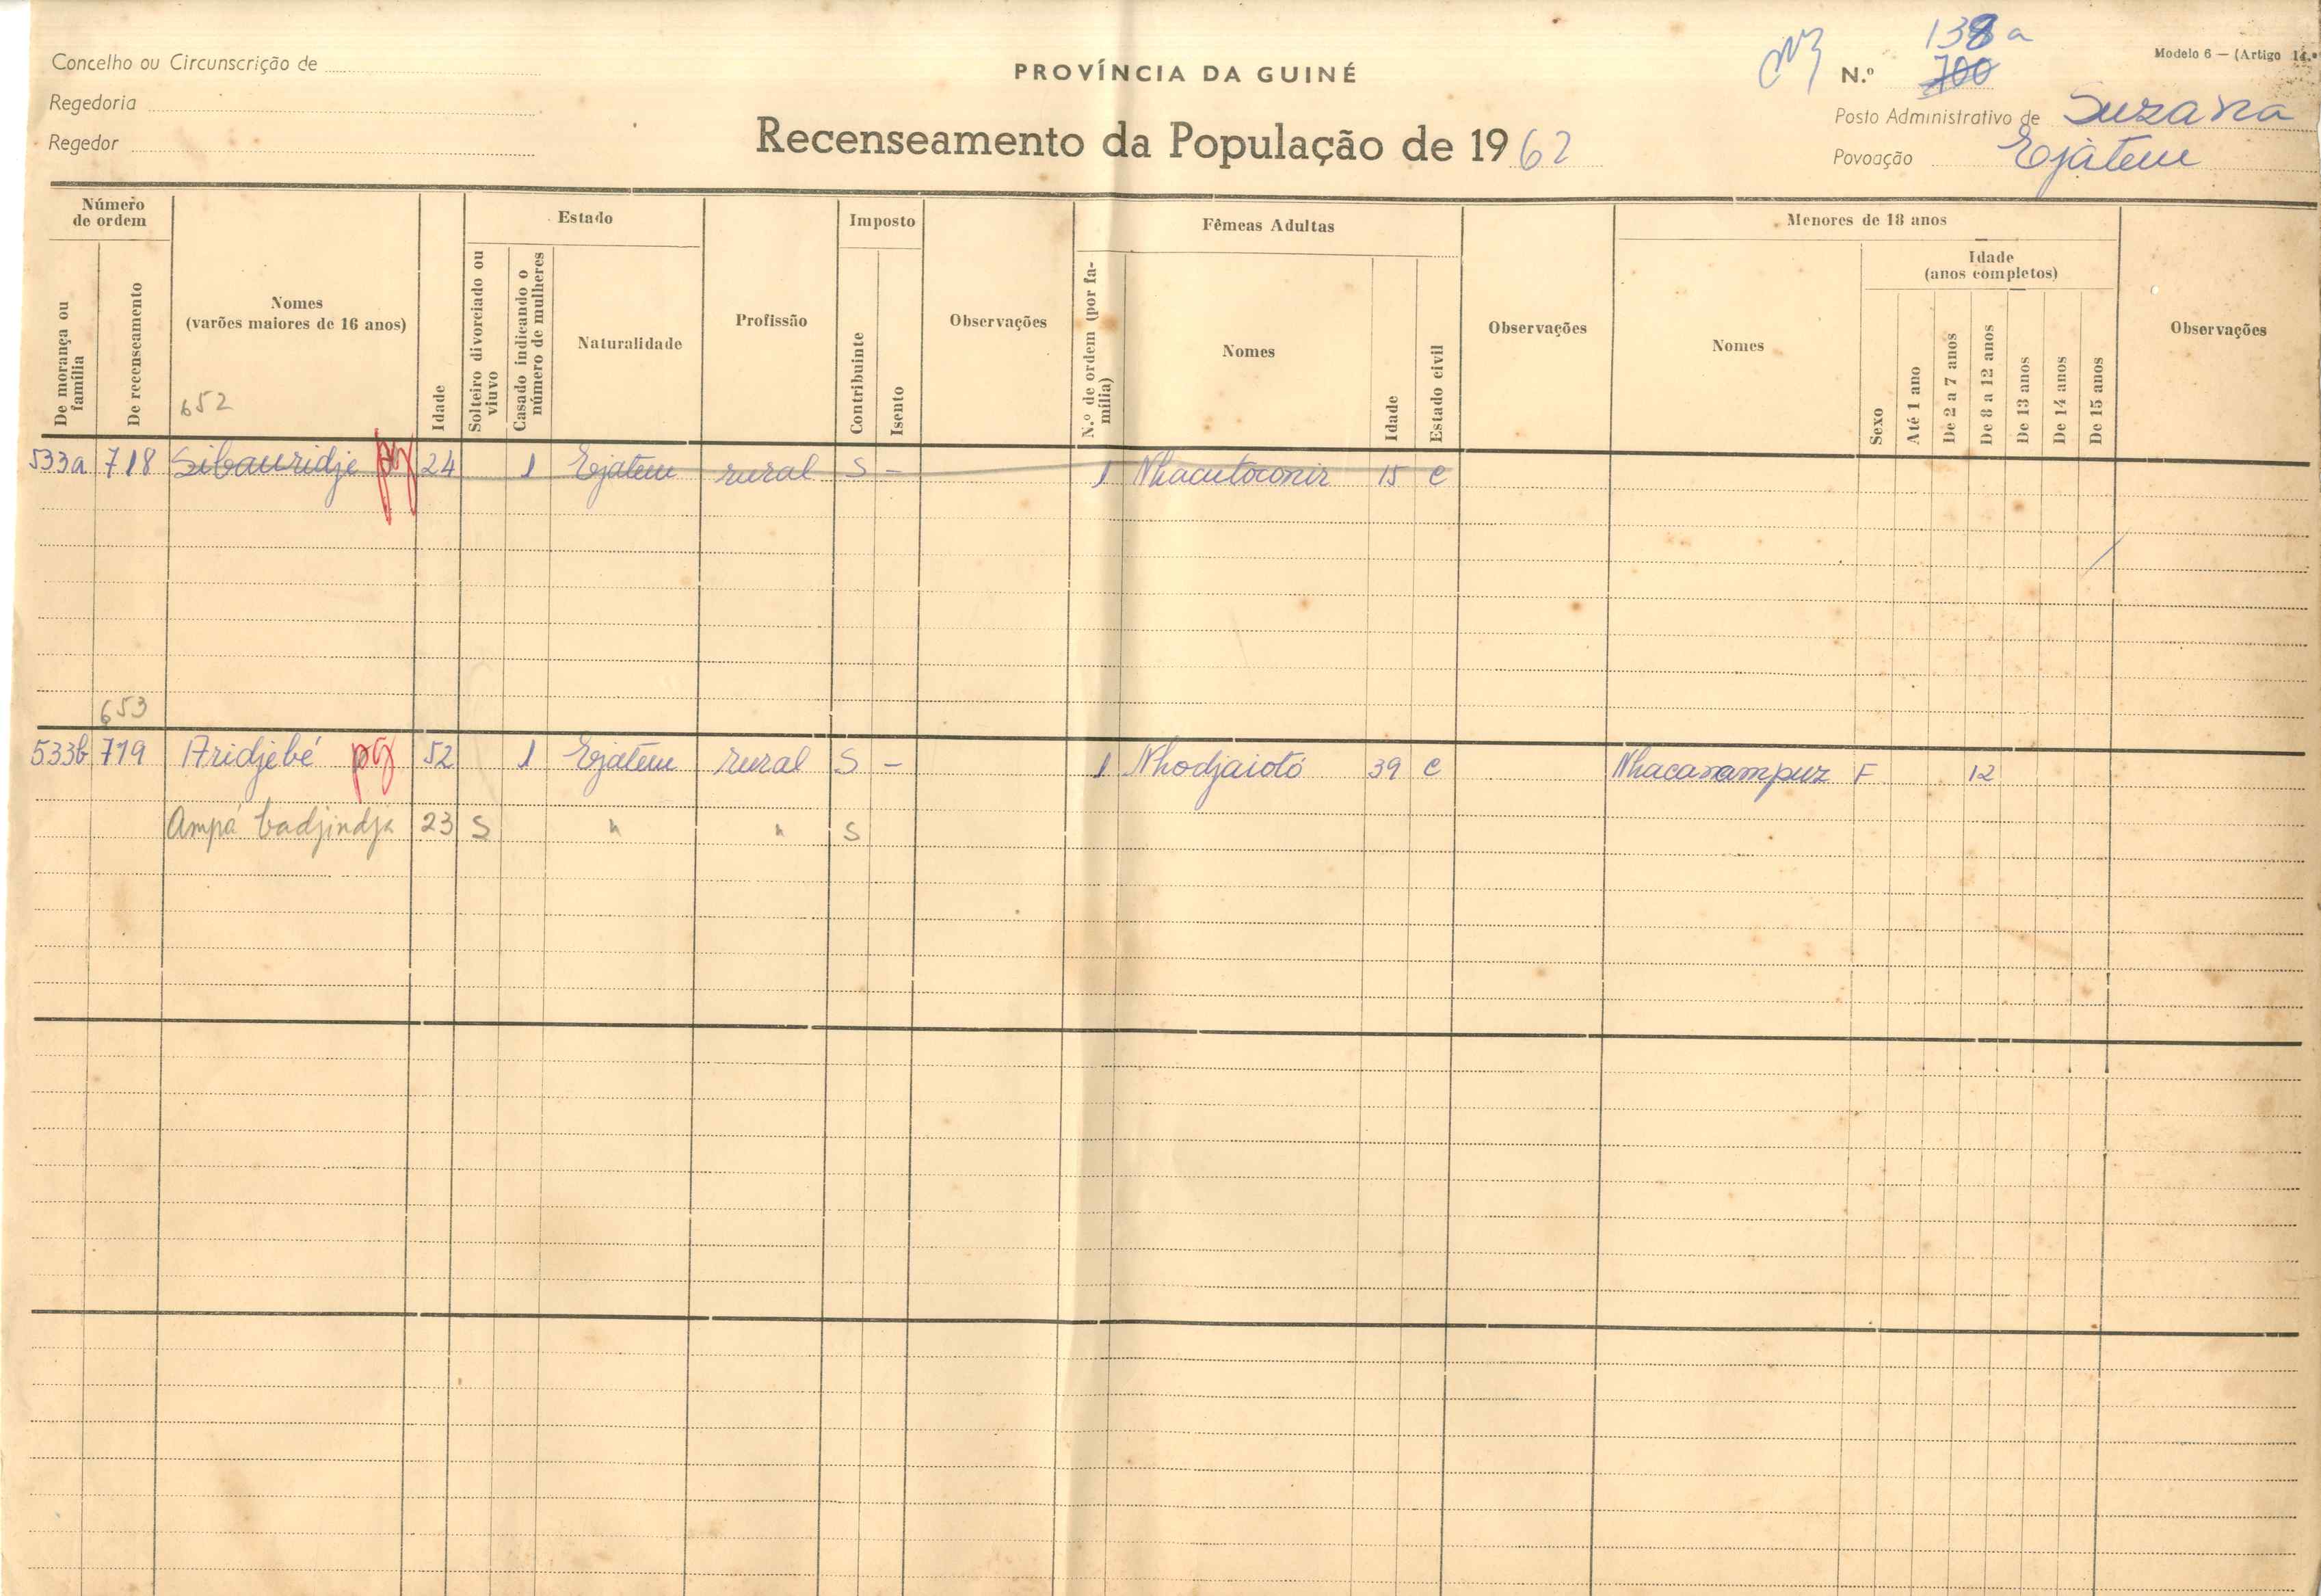 138a
Concelho ou Circunscrição de
PROVÍNCIA DA GUINÉ
N.º 700
Modelo 6 — (Artigo 14.º
Regedoria
Posto Administrativo de Suzana
Regedor
Recenseamento da População de 1962
Povoação Ejatem
Número de ordem
De morança ou família
De recenseamento
Nomes
(varões maiores de 16 anos)
652
Idade
Estado
Solteiro divorciado ou viuvo
Casado indicando o número de mulheres
Naturalidade
Profissão
Imposto
Contribuinte
Isento
Observações
Fêmeas Adultas
N.º de ordem (por família)
Nomes
Idade
Estado civil
Observações
Menores de 18 anos
Nomes
Sexo
Idade
(anos completos)
Até 1 ano
De 2 a 7 anos
De 8 a 12 anos
De 13 anos
De 14 anos
De 15 anos
Observações
533a 718 Sibauridje pg 24 1 Ejatem rural S - 1 Nhacutoconir 15 C
653
533b 719 Aridjebé pg 52 1 Ejatem rural S - 1 Nhodjaiotó 39 C Nhacanampuz F 12
Ampá badjindja 23 S " " S